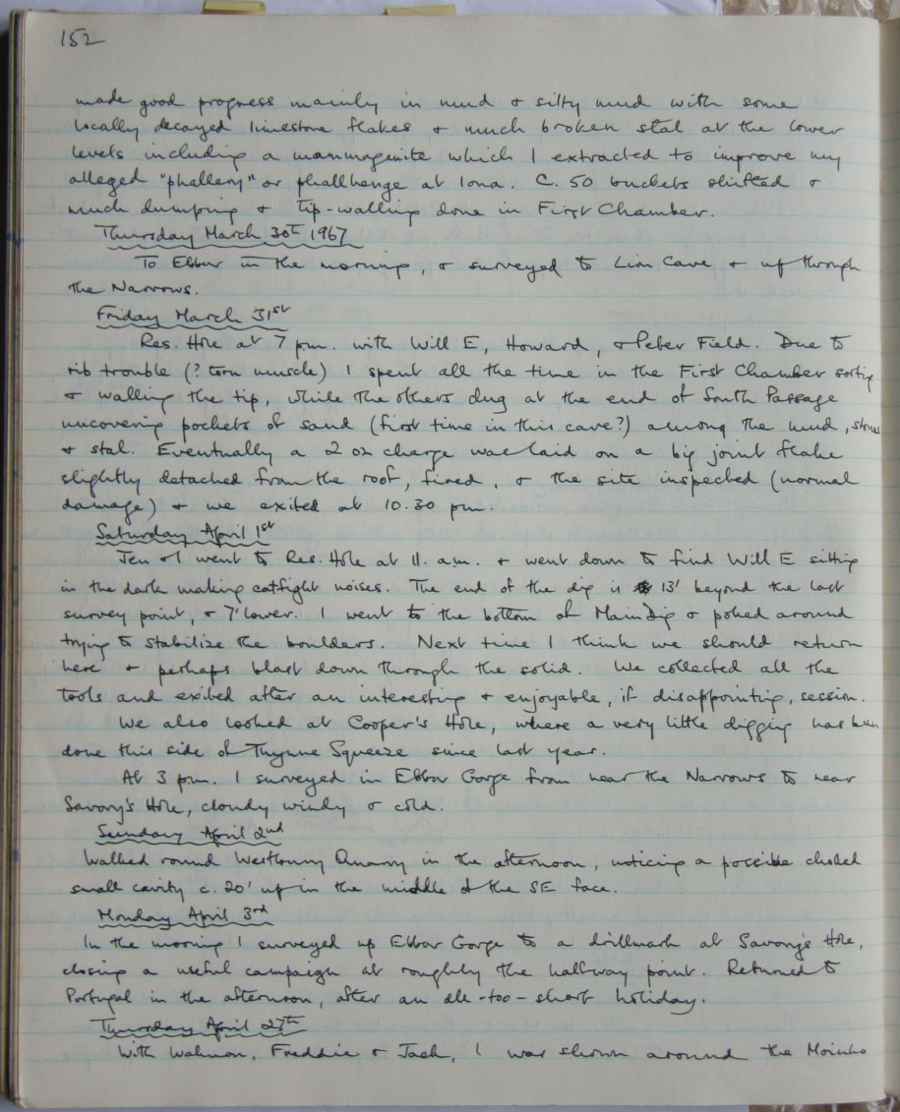 152
made good progress mainly in mud & silty mud with some
locally decayed limestone flakes & much broken stal at the lower
levels including a mammaganite which I extracted to improve my
alleged "phallery" or phallhenge at Iona. C. 50 buckets shifted &
much dumping & tip-walling done in First Chamber.
Thursday March 30th 1967
To Ebbor in the morning, & surveyed to Lion Cave & up through
the Narrows.
Friday March 31st
Res. Hole at 7 pm. with Will E, Howard, & Peter Field. Due to
rib trouble (? torn muscle) I spent all the time in the First Chamber sorting
& walling the tip, while the others dug at the end of South Passage
uncovering pockets of sand (first time in this cave?) among the mud, stones
& stal. Eventually a 2 oz charge was laid on a big joint flake
slightly detached from the roof, fired, & the site inspected (normal
damage) & we exited at 10.30 pm.
Saturday April 1st
Jen & I went to Res. Hole at 11. a.m. & went down to find Will E sitting
in the dark making catfight noises. The end of the dig is 13' beyond the last
survey point, & 7' lower. I went to the bottom of Main Dig & poked around
trying to stabilize the boulders. Next time I think we should return
here & perhaps blast down through the solid. We collected all the
tools and exited after an interesting & enjoyable, if disappointing, session.
We also looked at Cooper's Hole, where a very little digging has been
done this side of Thynne Squeeze since last year.
At 3 pm. I surveyed in Ebbor Gorge from near the Narrows to near
Savory's Hole, cloudy windy & cold.
Sunday April 2nd
Walked round Westbury Quarry in the afternoon, noticing a possible choked
small cavity c. 20' up in the middle of the SE face.
Monday April 3rd
In the morning I surveyed up Ebbor Gorge to a drillmark at Savory's Hole,
closing a useful campaign at roughly the halfway point. Returned to
Portugal in the afternoon, after an all-too-short holiday.
Thursday April 27th
With Walmon, Freddie & Jack, I was shown around the Moinho